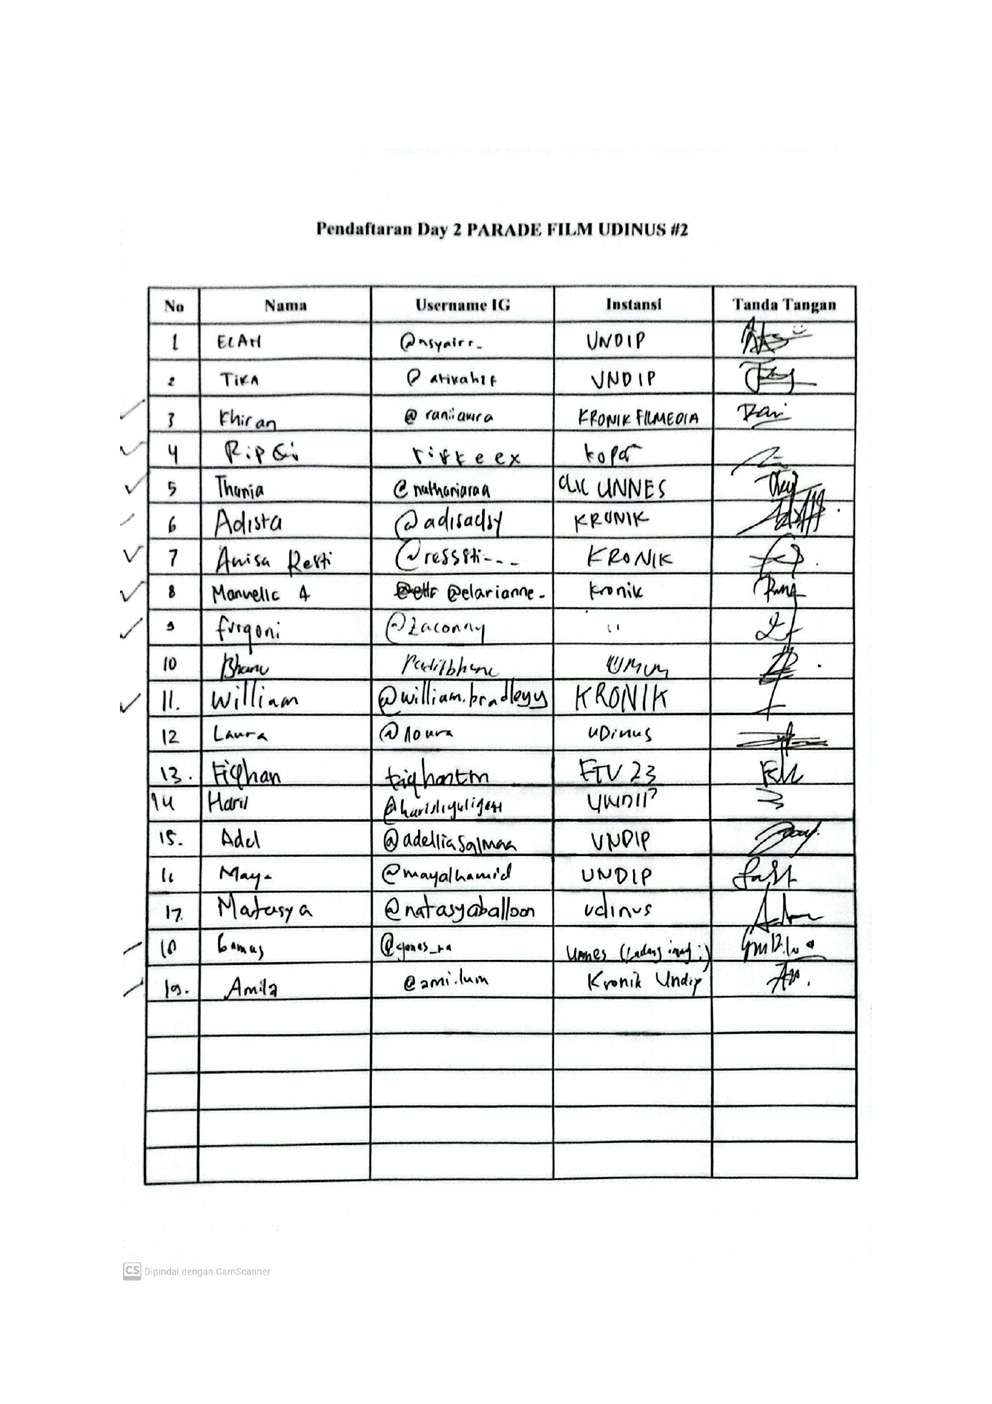 Pendaftaran Day 2 PARADE FILM UDINUS #2
No Nama Username IG Instansi Tanda Tangan
1 ELAH @nsyairr_ UNDIP
2 TIKA UNDIP
3 Khiran @raniaura KRONIK FILMEDIA
4 rifkeex
5 Thania @nathaniaraa UNNES
6 Adista @adisadsy KRONIK
7 Anisa Resti @ressti--- KRONIK
8 Manuella A @elarianne_ Kronik
9 Furqoni @zaconny "
10 Bhanu UMUM
11. William @william.bradleyy KRONIK
12 Laura @loura UDinus
13. Fiqhan fiqhantm FTV 23
14 Haris UNDIP
15. Adel @adelliasalmaa UNDIP
16 Maya @mayalhamid UNDIP
17. Natasya @natasyaballoon udinus
18 Gamas Unnes
19. Amila @ami.lum Kronik Undip
CS Dipindai dengan CamScanner